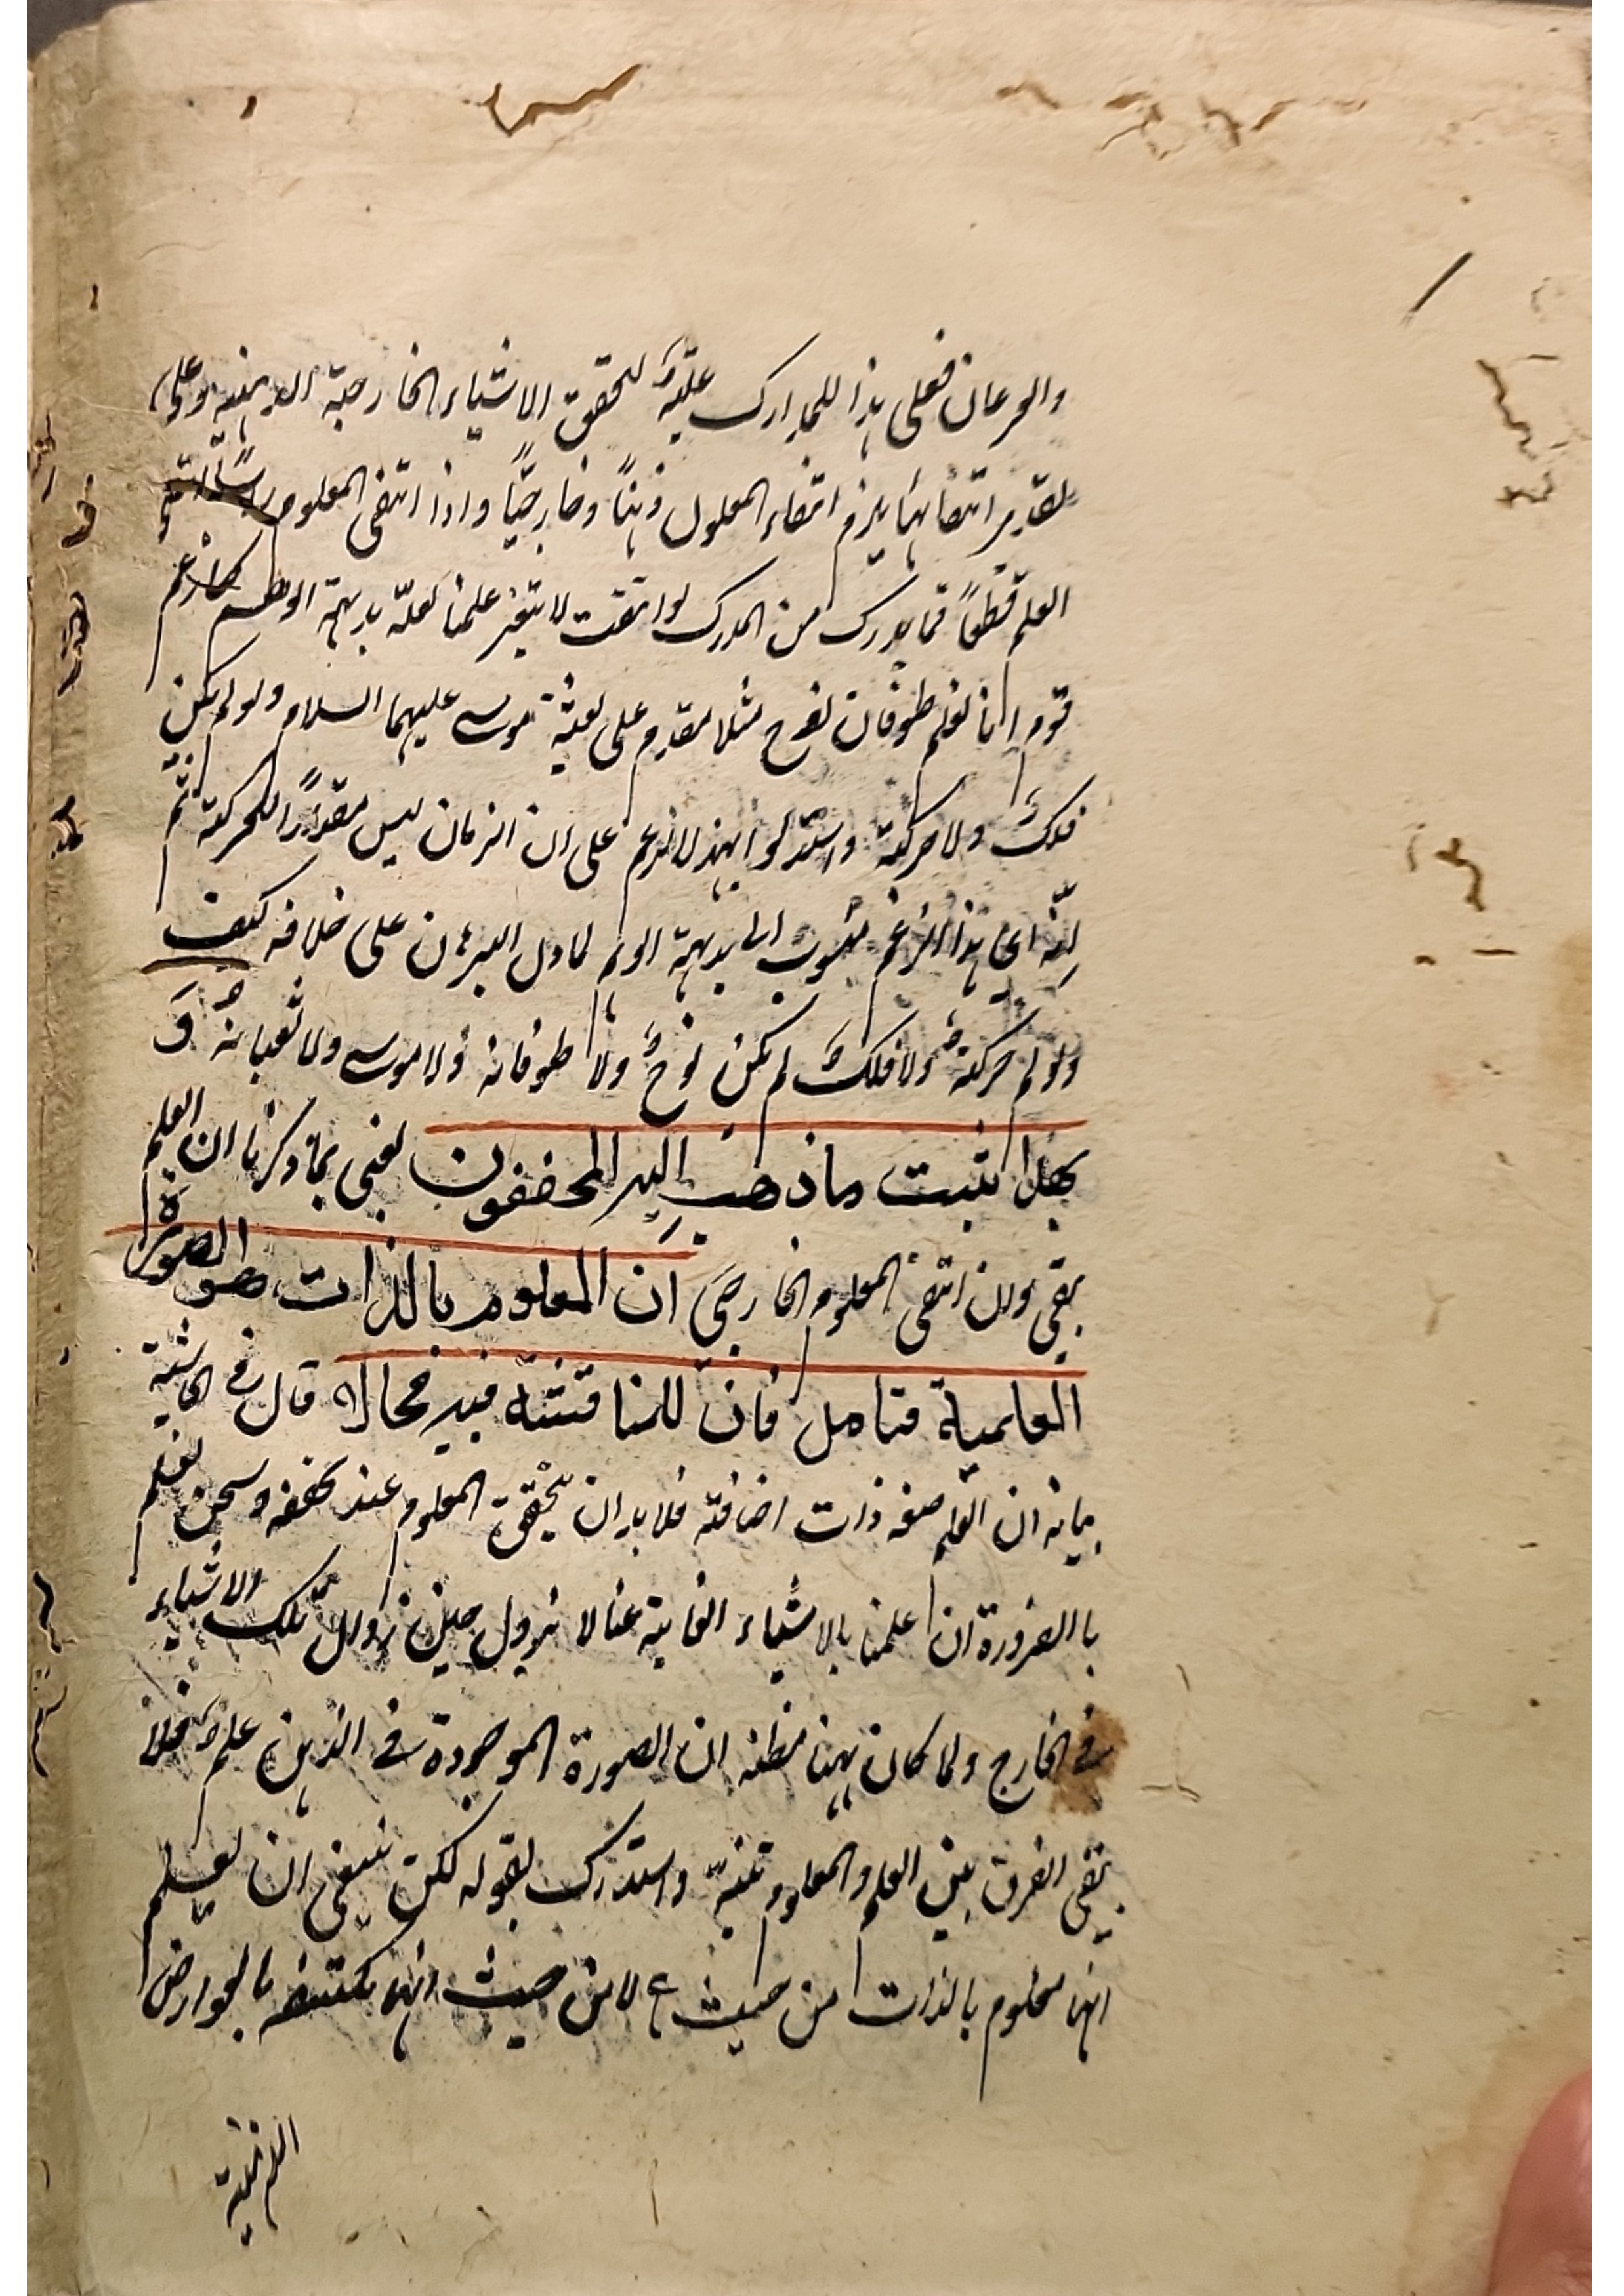 والحرمان فعلى هذا للمدارك علية لتحقق الاشياء الخارجية الذهنية وعلى
تقدير انتفائها يلزم انتفاء المعلول ذهنا وخارجيا واذا انتفى المعلوم راسا انتفى
العلم قطعا فما يدرك من المدرك لو انتفت لا يتغير علمنا لعله بديهة الوهم كما زعم
قوم انا نعلم طوفان نوح مثلا مقدم على بعثة موسى عليهما السلام ولو لم يكن
فلك ولا حركة واستدلوا بهذا الزعم على ان الزمان ليس مقدارا للحركة ثم
انه اى هذا الزعم منسوب الى بديهة الوهم لما دل البرهان على خلافه كيف
ولو لم حركة ولا فلك لم يكن نوح ولا طوفانه ولا موسى ولا ثعبانه وَ
بهذا يثبت ما ذهب اليه المحققون يعنى بما ذكرنا ان العلم
يبقى وان انتفى المعلوم الخارجى ان المعلوم بالذات هو الصورة
العلمية فتامل فان للمناقشة فيه مجالا قال فى الحاشية
بيانه ان العلم صفة ذات اضافة فلا بد ان يتحقق المعلوم عند تحققه ونحن نعلم
با الضرورة ان علمنا بالاشياء الغايبة عنا لا يزول حين زوال تلك الاشياء
فى الخارج ولما كان ههنا مظنة ان الصورة الموجودة فى الذهن علم فلا
يبقى الفرق بين العلم والمعلوم تنبه واستدرك بقوله لكن ينبغى ان يعلم
انها معلوم بالذات من حيث هى لا من حيث انها مكتنفة بالعوارض
الذهنية